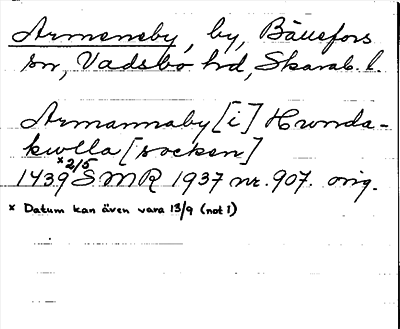 Armeneby, by, Bäckefors
sn, Vadsbo hd, Skarab. l.
Armannaby [i] Hwnda-
kwlla [socken]
x 2/5
1439 SMR 1937 nr. 907. orig.
x Datum kan även vara 13/9 (not 1)